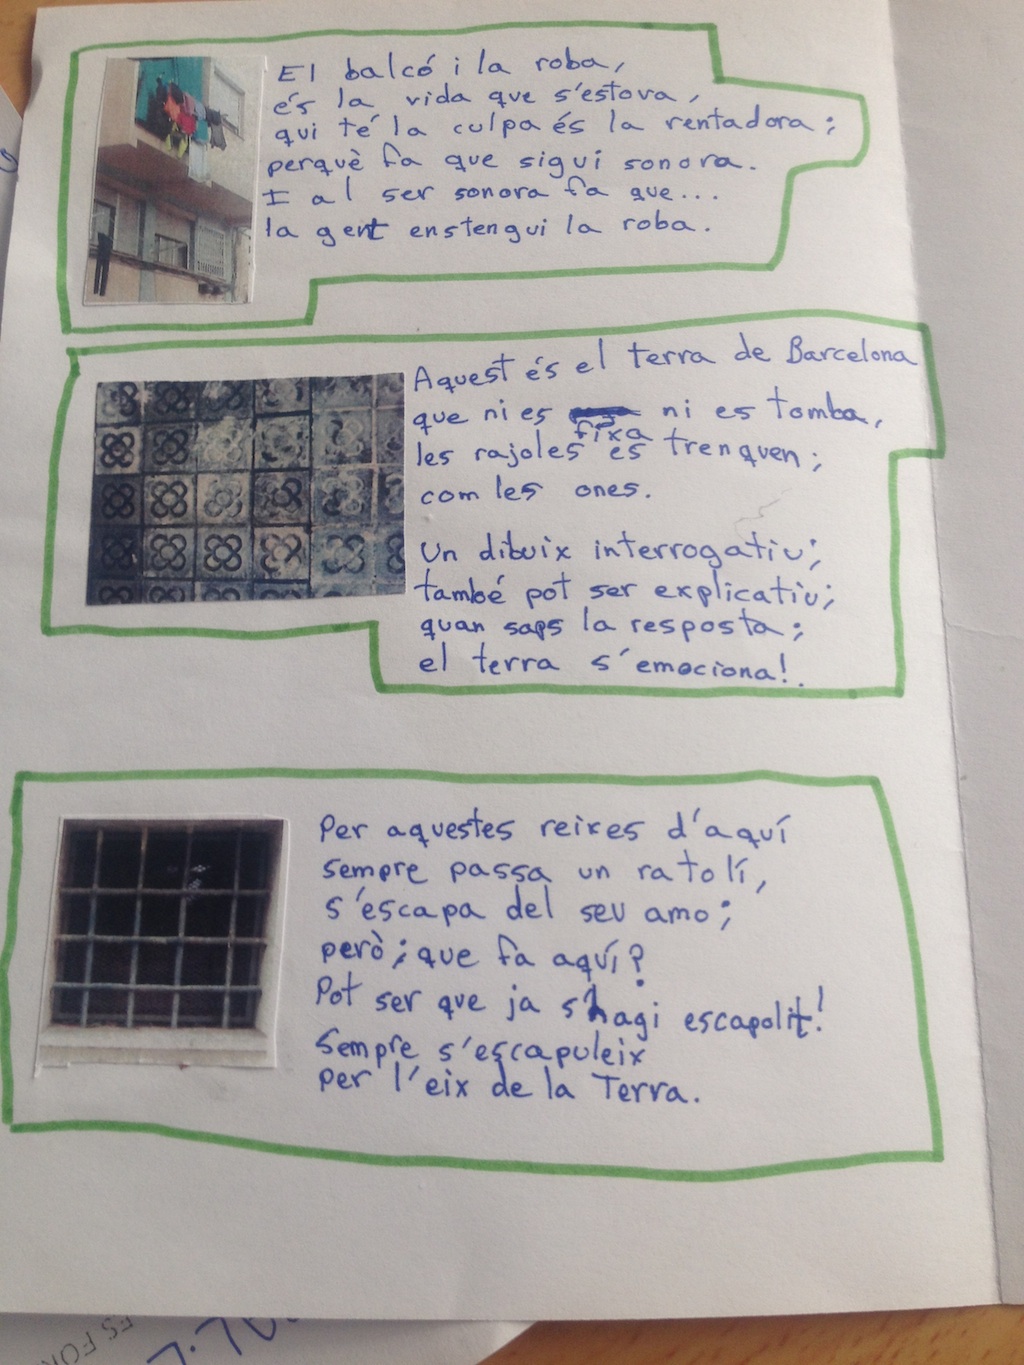 El balcó i la roba,
és la vida que s'estova,
qui té la culpa és la rentadora;
perquè fa que sigui sonora.
I al ser sonora fa que...
la gent enstengui la roba.
Aquest és el terra de Barcelona
que ni es fixa ni es tomba,
les rajoles es trenquen;
com les ones.
Un dibuix interrogatiu;
també pot ser explicatiu;
quan saps la resposta;
el terra s'emociona!.
Per aquestes reixes d'aquí
sempre passa un ratolí,
s'escapa del seu amo;
però; que fa aquí?
Pot ser que ja s'hagi escapolit!
Sempre s'escapuleix
per l'eix de la Terra.
ES FOR